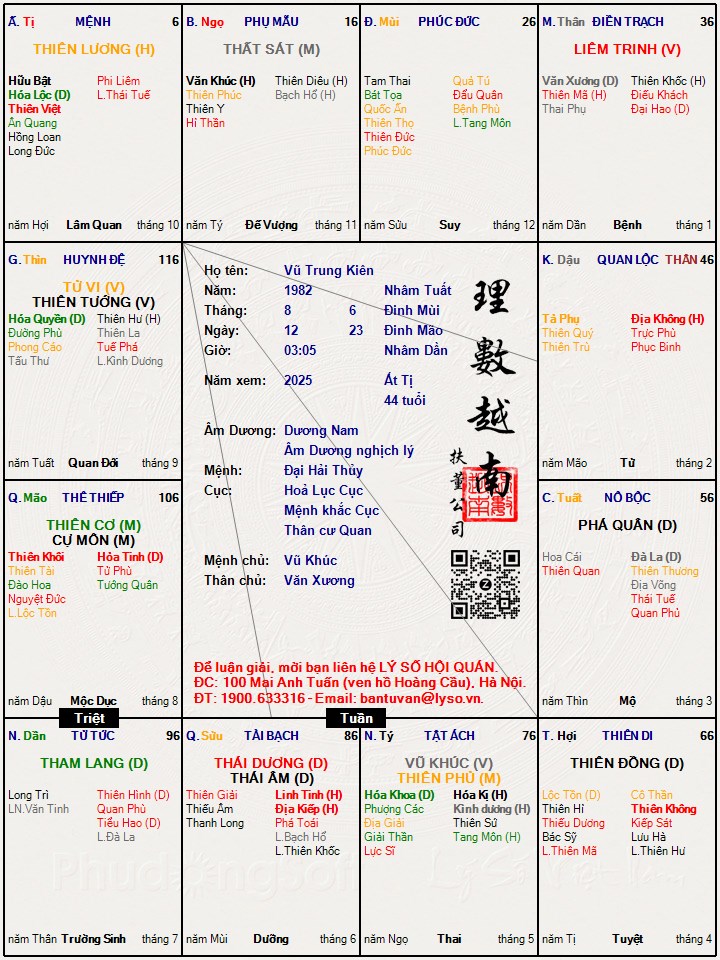 Ấ. Tị MỆNH 6
THIÊN LƯƠNG (H)
Hữu Bật Phi Liêm
Hóa Lộc (D) L.Thái Tuế
Thiên Việt
Ân Quang
Hồng Loan
Long Đức
năm Hợi Lâm Quan tháng 10
B. Ngọ PHỤ MẪU 16
THẤT SÁT (M)
Văn Khúc (H) Thiên Diêu (H)
Thiên Phúc Bạch Hổ (H)
Thiên Y
Hỉ Thần
năm Tý Đế Vượng tháng 11
Đ. Mùi PHÚC ĐỨC 26
Tam Thai Quả Tú
Bát Tọa Đẩu Quân
Quốc Ấn Bệnh Phù
Thiên Thọ L.Tang Môn
Thiên Đức
Phúc Đức
năm Sửu Suy tháng 12
M. Thân ĐIỀN TRẠCH 36
LIÊM TRINH (V)
Văn Xương (D) Thiên Khốc (H)
Thiên Mã (H) Điếu Khách
Thai Phụ Đại Hao (D)
năm Dần Bệnh tháng 1
G. Thìn HUYNH ĐỆ 116
TỬ VI (V)
THIÊN TƯỚNG (V)
Hóa Quyền (D) Thiên Hư (H)
Đường Phù Thiên La
Phong Cáo Tuế Phá
Tấu Thư L.Kình Dương
năm Tuất Quan Đới tháng 9
Họ tên: Vũ Trung Kiên
Năm: 1982 Nhâm Tuất
Tháng: 8 6 Đinh Mùi
Ngày: 12 23 Đinh Mão
Giờ: 03:05 Nhâm Dần
Năm xem: 2025 Ất Tị
44 tuổi
Âm Dương: Dương Nam
Âm Dương nghịch lý
Mệnh: Đại Hải Thủy
Cục: Hoả Lục Cục
Mệnh khắc Cục
Thân cư Quan
Mệnh chủ: Vũ Khúc
Thân chủ: Văn Xương
理數越南
扶董公司
Để luận giải, mời bạn liên hệ LÝ SỐ HỘI QUÁN.
ĐC: 100 Mai Anh Tuấn (ven hồ Hoàng Cầu), Hà Nội.
ĐT: 1900.633316 - Email: bantuvan@lyso.vn.
K. Dậu QUAN LỘC THÂN 46
Tả Phụ Địa Không (H)
Thiên Quý Trực Phù
Thiên Trù Phục Binh
năm Mão Tử tháng 2
Q. Mão THÊ THIẾP 106
THIÊN CƠ (M)
CỰ MÔN (M)
Thiên Khôi Hỏa Tinh (D)
Thiên Tài Tử Phù
Đào Hoa Tướng Quân
Nguyệt Đức
L.Lộc Tồn
năm Dậu Mộc Dục tháng 8
C. Tuất NÔ BỘC 56
PHÁ QUÂN (D)
Hoa Cái Đà La (D)
Thiên Quan Thiên Thương
Địa Võng
Thái Tuế
Quan Phủ
năm Thìn Mộ tháng 3
Triệt
Tuần
N. Dần TỬ TỨC 96
THAM LANG (D)
Long Trì Thiên Hình (D)
LN.Văn Tinh Quan Phù
Tiểu Hao (D)
L.Đà La
năm Thân Trường Sinh tháng 7
Q. Sửu TÀI BẠCH 86
THÁI DƯƠNG (D)
THÁI ÂM (D)
Thiên Giải Linh Tinh (H)
Thiếu Âm Địa Kiếp (H)
Thanh Long Phá Toái
L.Bạch Hổ
L.Thiên Khốc
năm Mùi Dưỡng tháng 6
N. Tý TẬT ÁCH 76
VŨ KHÚC (V)
THIÊN PHỦ (M)
Hóa Khoa (D) Hóa Kị (H)
Phượng Các Kình dương (H)
Địa Giải Thiên Sứ
Giải Thần Tang Môn (H)
Lực Sĩ
năm Ngọ Thai tháng 5
T. Hợi THIÊN DI 66
THIÊN ĐỒNG (D)
Lộc Tồn (D) Cô Thần
Thiên Hỉ Thiên Không
Thiếu Dương Kiếp Sát
Bác Sỹ Lưu Hà
L.Thiên Mã L.Thiên Hư
năm Tị Tuyệt tháng 4